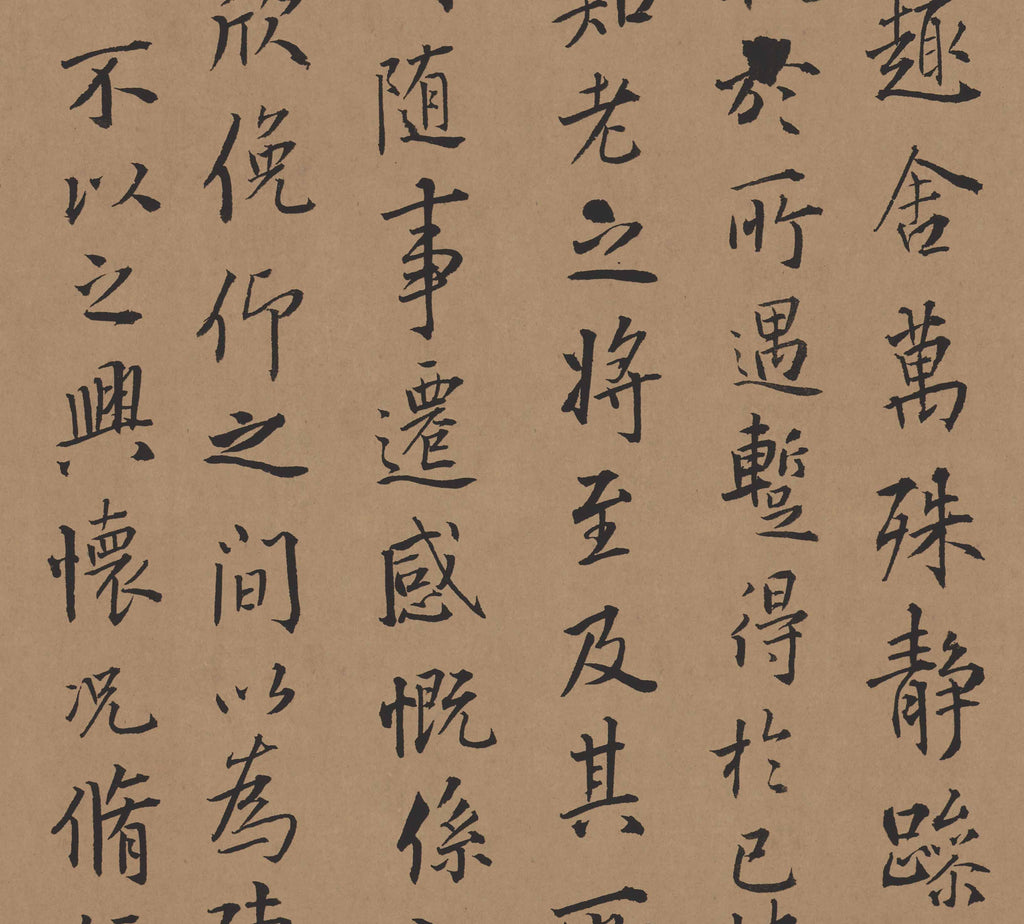 趣舍萬殊静躁
於所遇蹔得於己
知老之將至及其
随事遷感慨係
欣俛仰之間以為陳
不以之興懷況脩